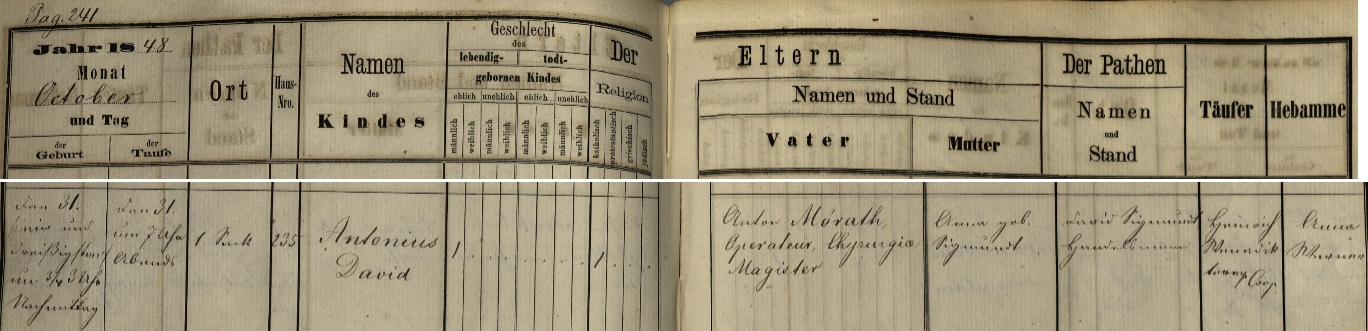 Pag. 241
Jahr 1848
Monat
October
und Tag
der
Geburt
der
Taufe
Ort
Haus-
Nro.
Namen
des
Kindes
Geschlecht
des
lebendig-
todt-
gebornen Kindes
ehlich
unehlich
ehlich
unehlich
männlich
weiblich
männlich
weiblich
männlich
weiblich
männlich
weiblich
Der
Religion
katholisch
protestantisch
griechisch
jüdisch
Eltern
Namen und Stand
Vater
Mutter
Der Pathen
Namen
und
Stand
Täufer
Hebamme
den 31.
ein und
dreißigsten
um 3/4 3 Uhr
Nachmittag
den 31.
um 7 Uhr
Abends
1.
235
Antonius
David
1
1
Anton Mórath,
Operateur, Chyrurgiæ
Magister
Anna geb.
Sigmundt
David Sigmundt
Handelsmann
Heinrich
Coop.
Anna
Werner